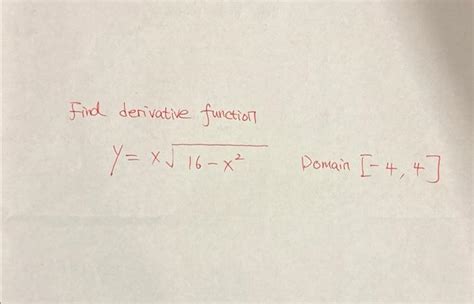 Find derivative function
y = x√(16 - x²) Domain [-4, 4]